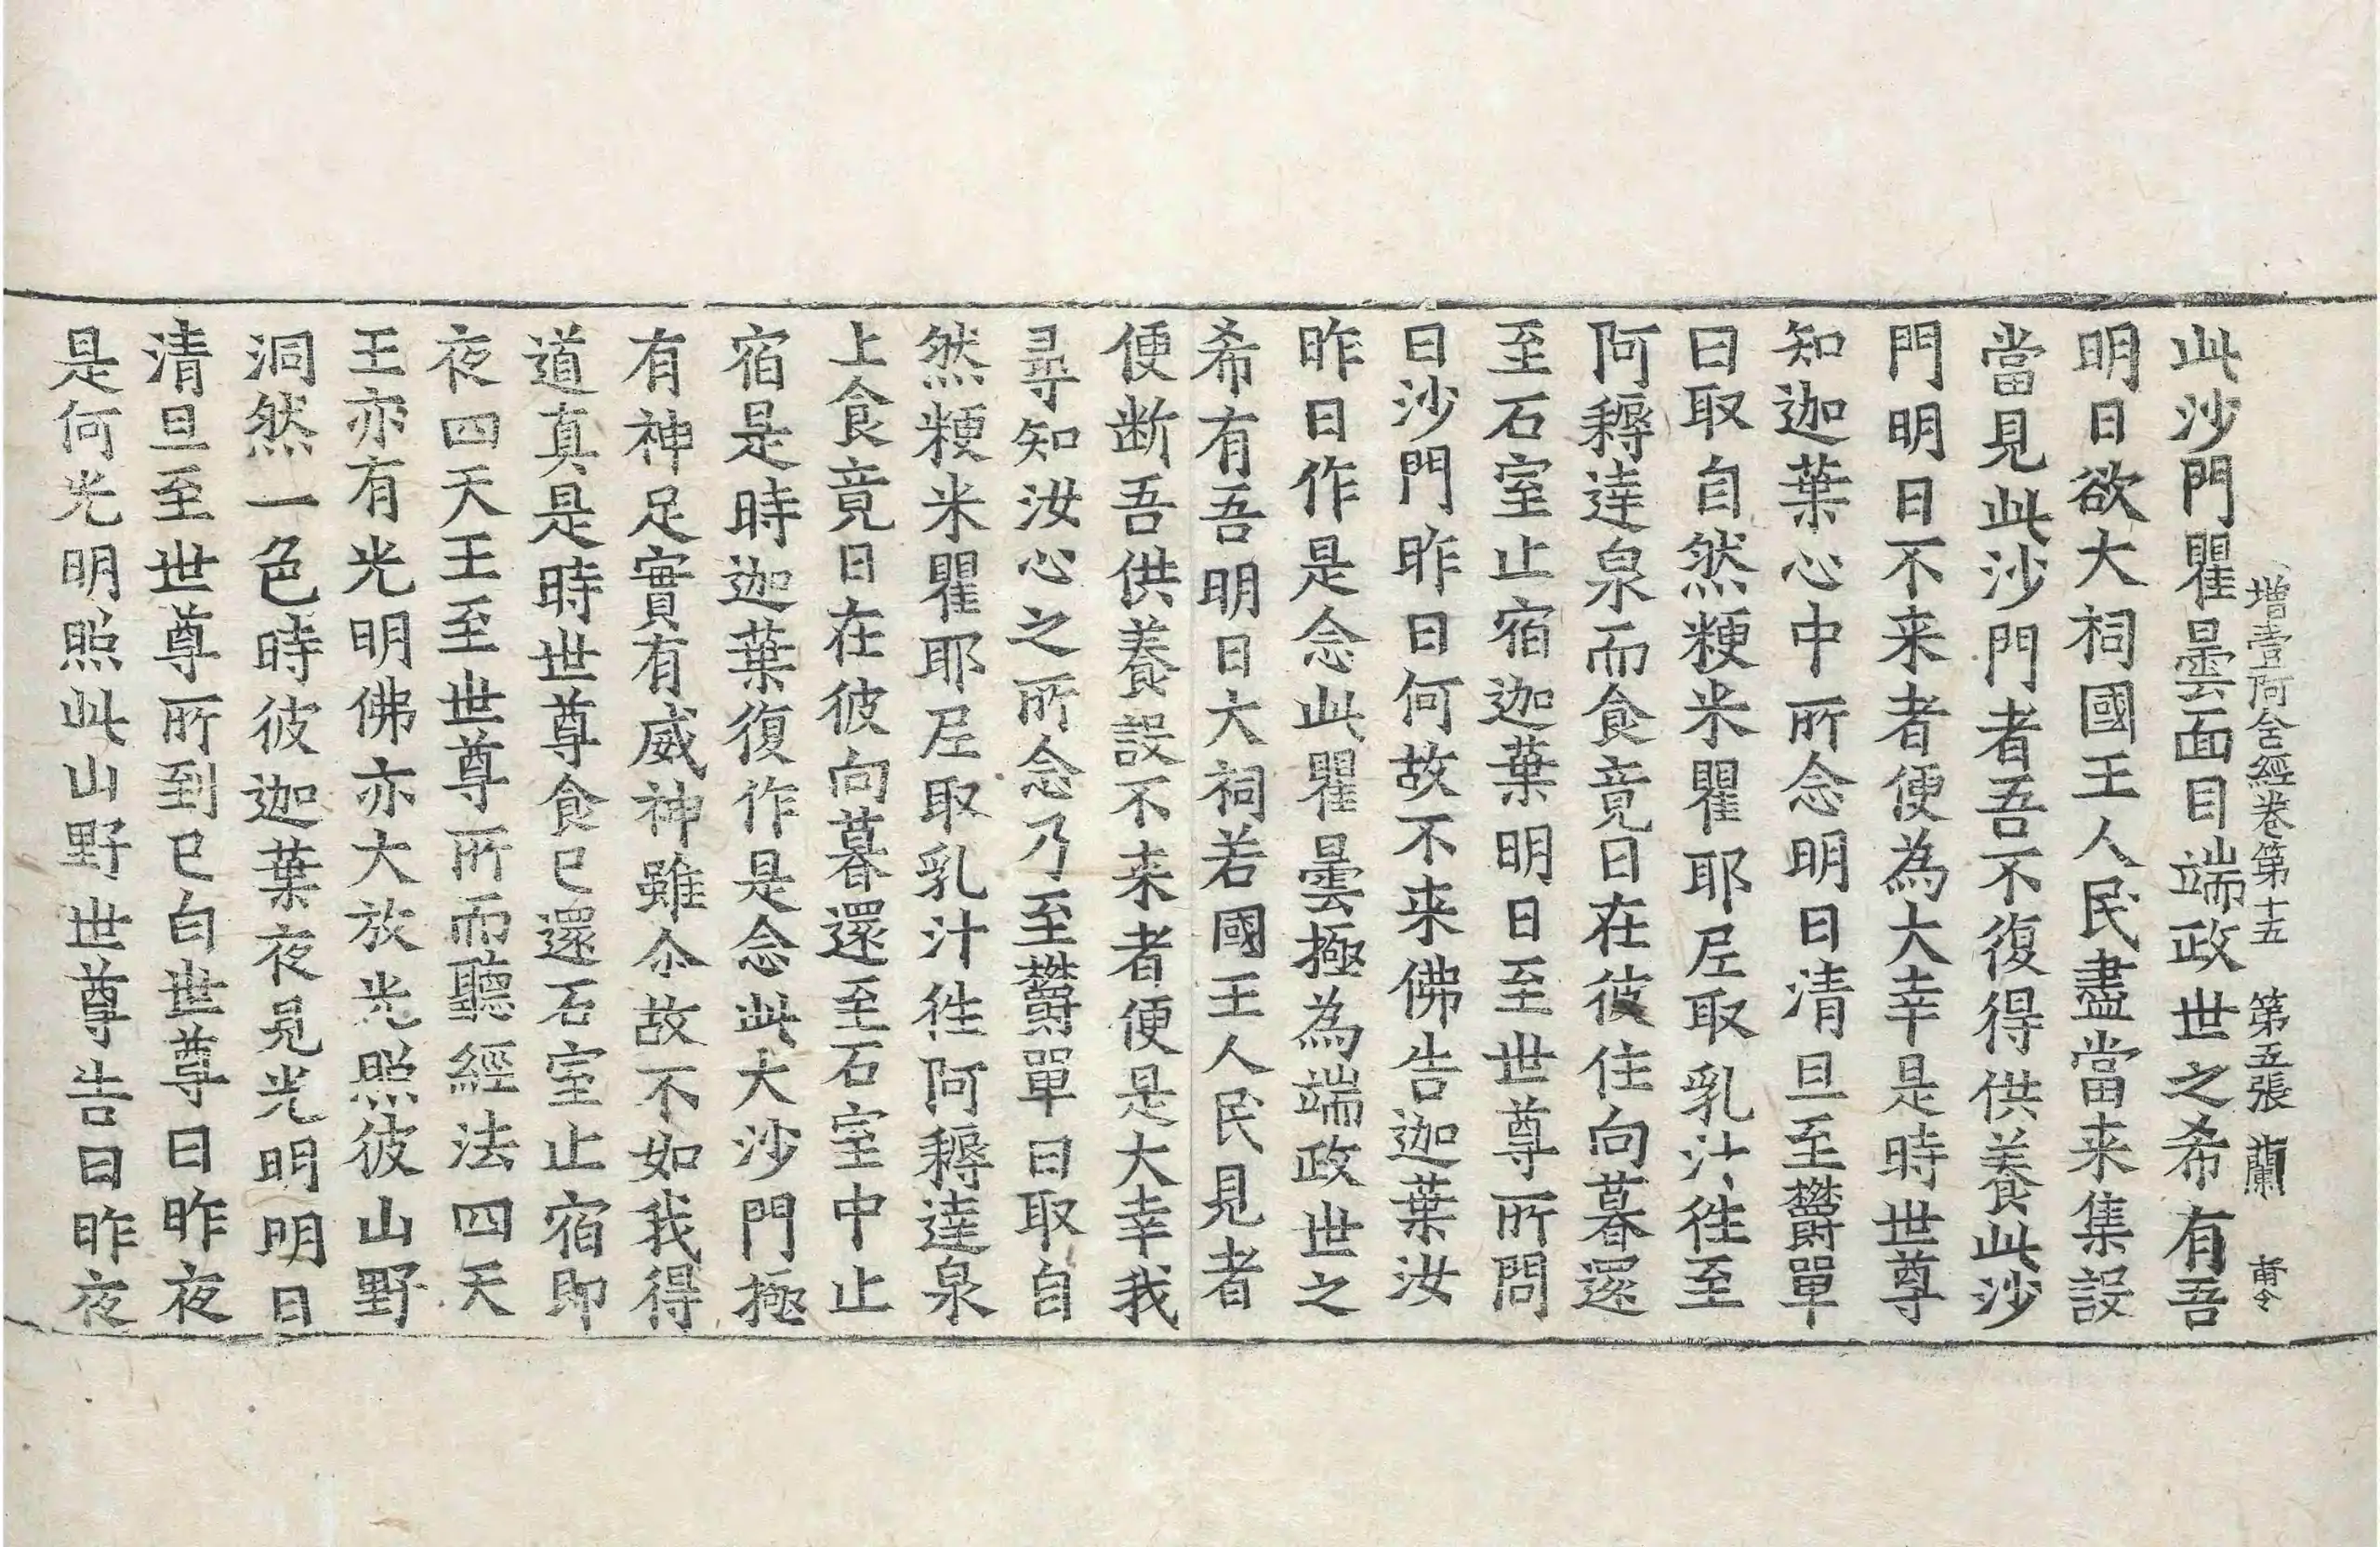 增壹阿含經卷第十五 第五張 蘭 甫令
此沙門瞿曇面目端政世之希有吾
明日欲大祠國王人民盡當来集設
當見此沙門者吾不復得供養此沙
門明日不来者便為大幸是時世尊
知迦葉心中所念明日清旦至欝單
曰取自然粳米瞿耶尼取乳汁往至
阿耨達泉而食竟日在彼住向暮還
至石室止宿迦葉明日至世尊所問
曰沙門昨日何故不来佛告迦葉汝
昨日作是念此瞿曇極為端政世之
希有吾明日大祠若國王人民見者
便断吾供養設不来者便是大幸我
尋知汝心之所念乃至欝單曰取自
然粳米瞿耶尼取乳汁往阿耨達泉
上食竟日在彼向暮還至石室中止
宿是時迦葉復作是念此大沙門極
有神足實有威神雖尒故不如我得
道真是時世尊食已還石室止宿即
夜四天王至世尊所而聽經法四天
王亦有光明佛亦大放光照彼山野
洞然一色時彼迦葉夜見光明明日
清旦至世尊所到已白世尊曰昨夜
是何光明照此山野世尊告曰昨夜